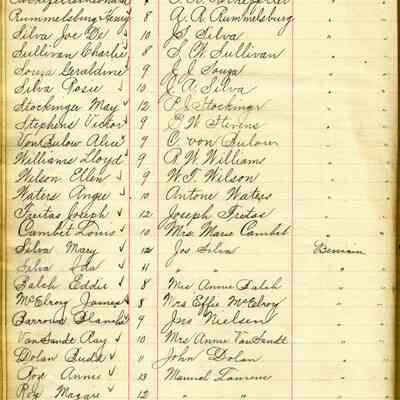 Rummelsburg Henry 8 R. A. Rummelsburg "
Silva Joe De 10 J. Silva "
Sullivan Charlie 8 T. W. Sullivan "
Souza Geraldine 9 J. J. Souza "
Silva Rosie 10 J. A. Silva "
Stockinger May 12 P. J. Stockinger "
Stephens Victor 9 P. W. Stevens "
Von Bulow Alice 9 C. von Bulow "
Williams Lloyd 9 R. W. Williams "
Wilson Ellen 9 W. T. Wilson "
Waters Angie 10 Antone Waters "
Freitas Joseph 12 Joseph Freitas "
Cambet Louis 10 Mrs. Marie Cambet "
Silva Mary 12 Jos Silva Benicia "
Silva Ida 11 " " " "
Balch Eddie 8 Mrs Annie Balch " "
McElroy James 8 Mrs Effie McElroy " "
Barrows Blanche 9 Jno Nielsen " "
Van Sandt Ray 10 Mrs Annie Van Sandt " "
Dolan 11 John Dolan " "
Annie 13 Manuel " "
Rex 12 " " " "